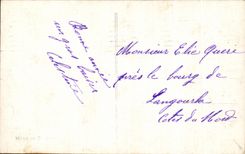 Bonne année
un gros baiser
Monsieur Elie Quéré
près le bourg de
Langourla
Cotes du Nord